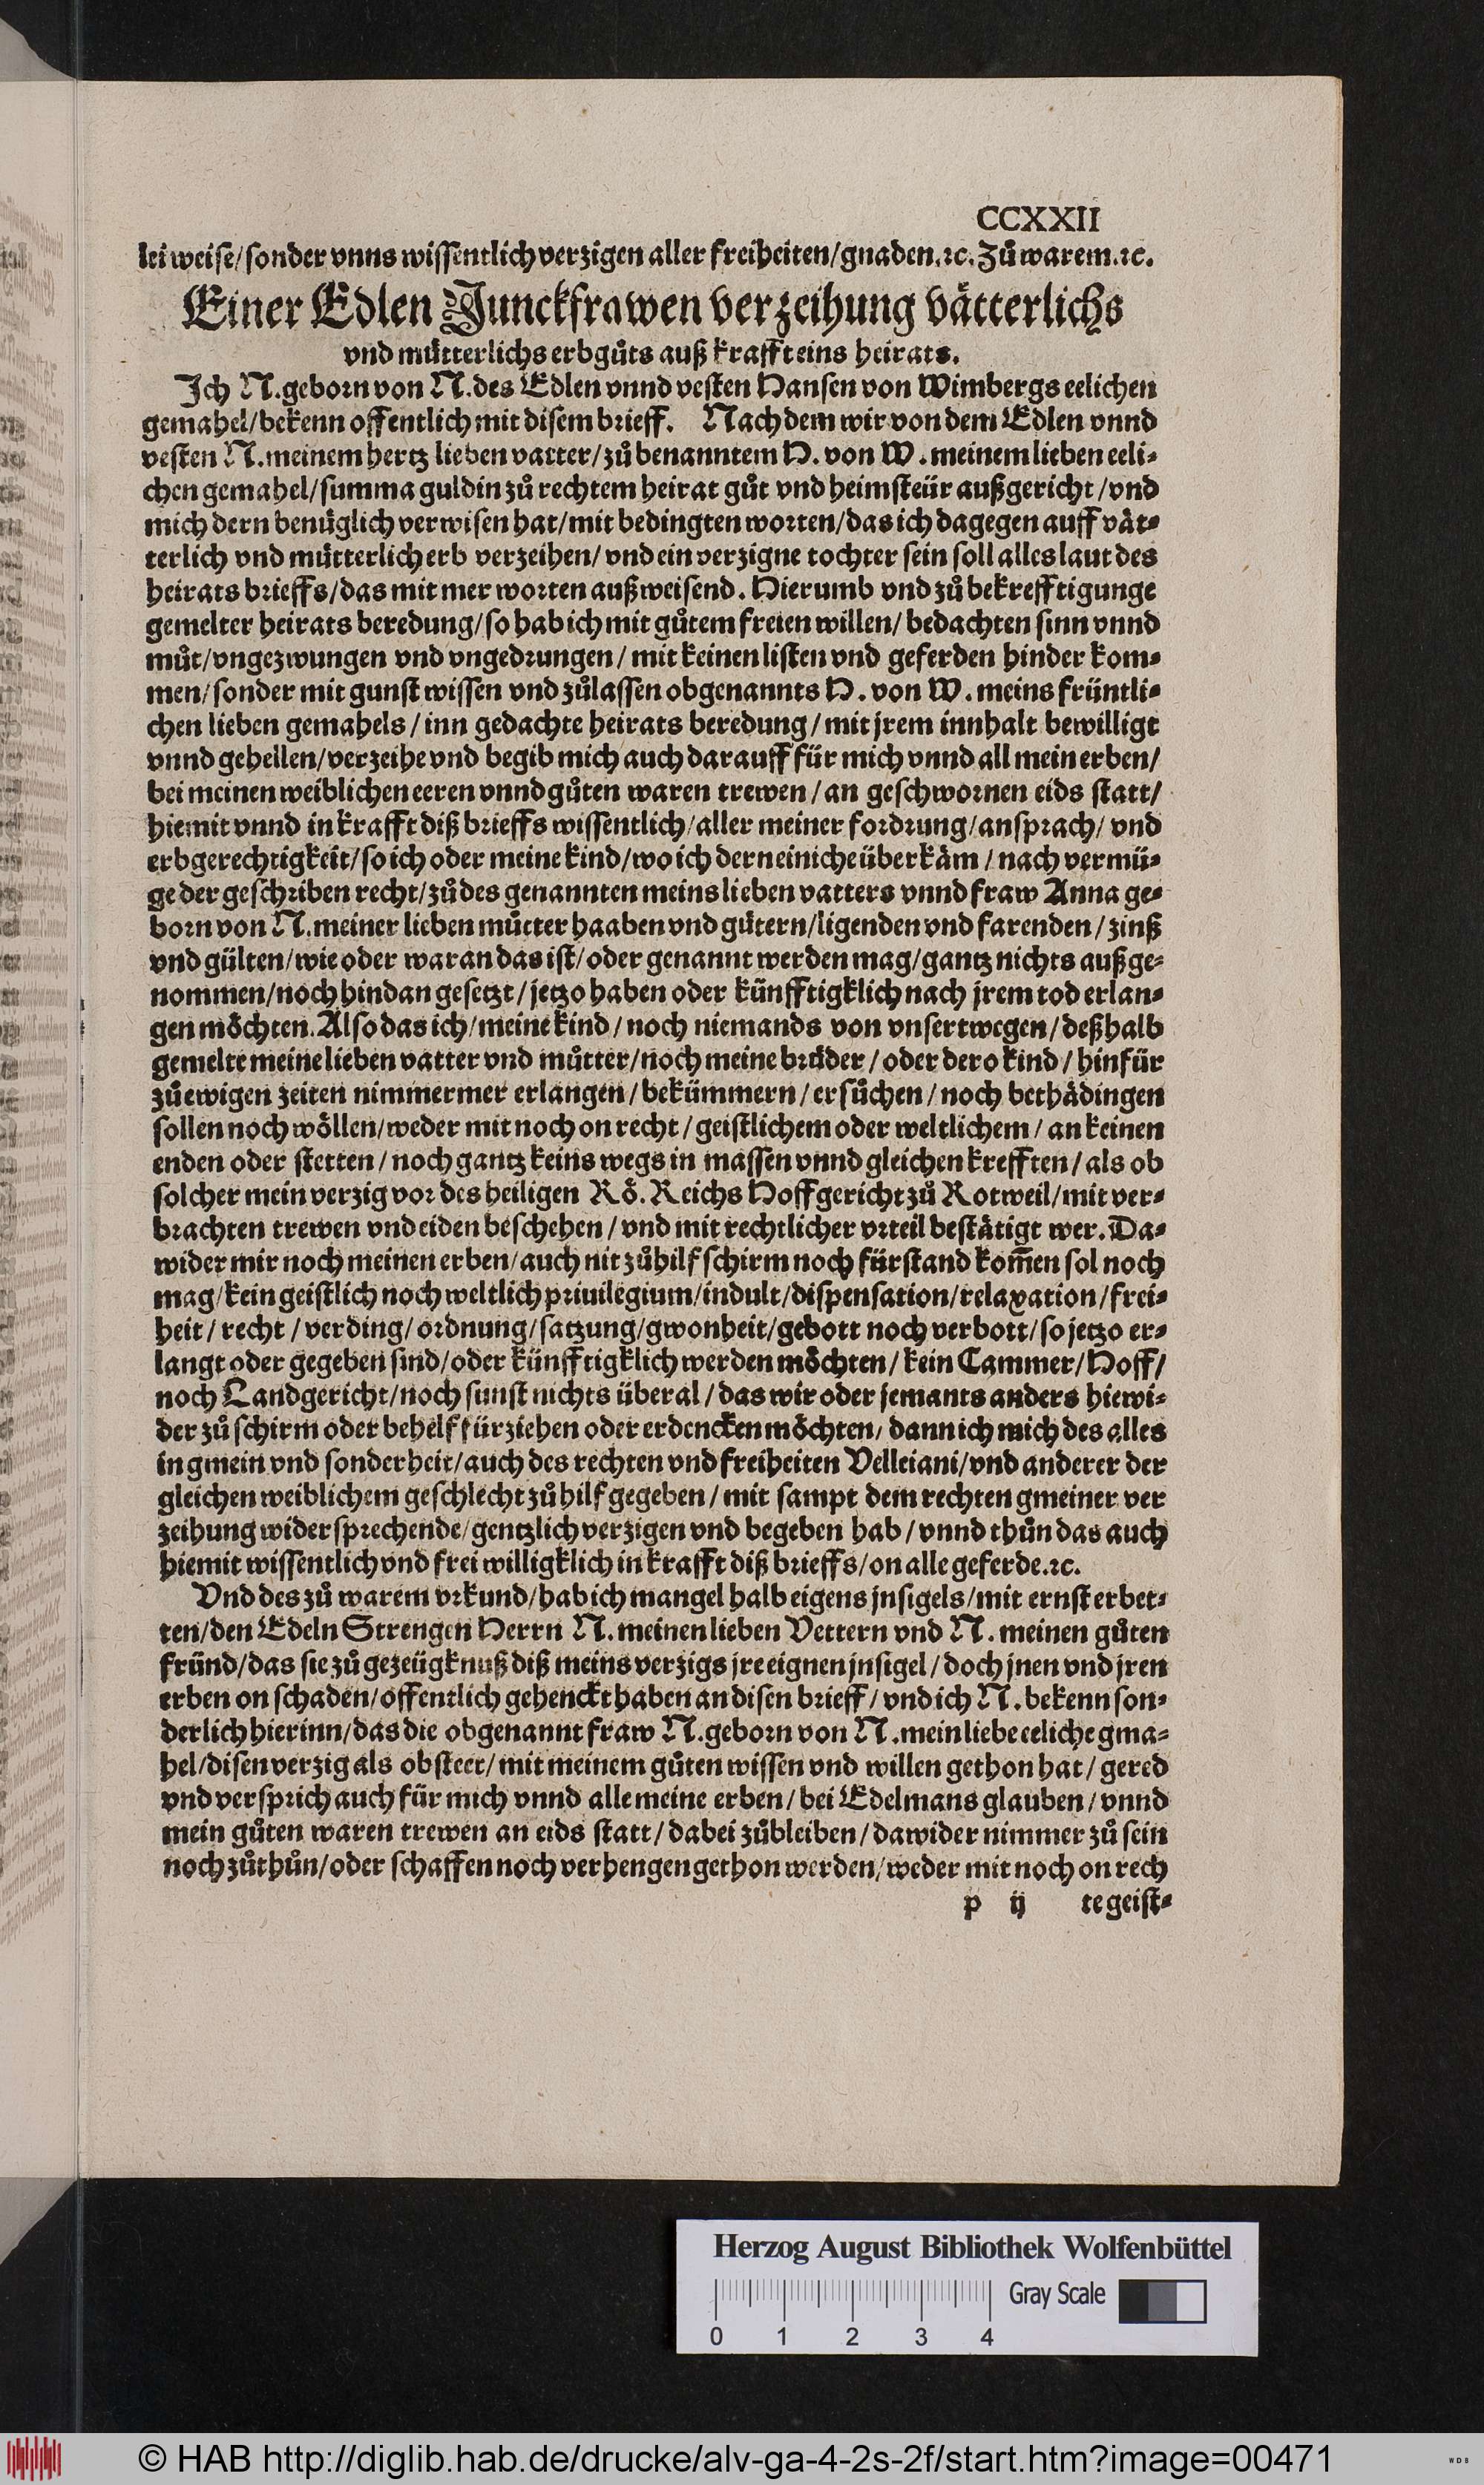 CCXXII
lei weise/sonder vnns wissentlich verzigen aller freiheiten/gnaden.ꝛc. Zů warem.ꝛc.
Einer Edlen Junckfrawen verzeihung vätterlichs
vnd mütterlichs erbgůts auß krafft eins heirats.
Ich N. geborn von N. des Edlen vnnd vesten Hansen von Wimbergs eelichen
gemahel/bekenn offentlich mit disem brieff. Nach dem wir von dem Edlen vnnd
vesten N. meinem hertz lieben vatter/zů benanntem H. von W. meinem lieben eeli-
chen gemahel/summa guldin zů rechtem heirat gůt vnd heimsteür außgericht/vnd
mich dern benüglich verwisen hat/mit bedingten worten/das ich dagegen auff vät-
terlich vnd müttterlich erb verzeihen/vnd ein verzigne tochter sein soll alles laut des
heirats brieffs/das mit mer worten außweisend. Hierumb vnd zů bekrefftigunge
gemelter heirats beredung/so hab ich mit gůtem freien willen/bedachten sinn vnnd
můt/vngezwungen vnd vngedrungen/mit keinen listen vnd geferden hinder kom-
men/sonder mit gunst wissen vnd zůlassen obgenannts H. von W. meins früntli-
chen lieben gemahels/inn gedachte heirats beredung/mit jrem innhalt bewilligt
vnnd gehellen/verzeihe vnd begib mich auch darauff für mich vnnd all mein erben/
bei meinen weiblichen eeren vnnd gůten waren trewen/an geschwornen eids statt/
hiemit vnnd in krafft diß brieffs wissentlich/aller meiner fordrung/ansprach/vnd
erbgerechtigkeit/so ich oder meine kind/wo ich der neiniche überkäm/nach vermü-
ge der geschriben recht/zů des genannten meins lieben vatters vnnd fraw Anna ge-
born von N. meiner lieben můtter haaben vnd gütern/ligenden vnd farenden/zinß
vnd gülten/wie oder waran das ist/oder genannt werden mag/gantz nichts außge-
nommen/noch hindan gesetzt/jetzo haben oder künfftigklich nach jrem tod erlan-
gen möchten. Also das ich/meine kind/noch niemands von vnsert wegen/deßhalb
gemelte meine lieben vatter vnd můtter/noch meine brüder/oder dero kind/hinfür
zů ewigen zeiten nimmermer erlangen/bekümmern/ersůchen/noch bethädingen
sollen noch wöllen/weder mit noch on recht/geistlichem oder weltlichem/an keinen
enden oder stetten/noch gantz keins wegs in massen vnnd gleichen krefften/als ob
solcher mein verzig vor des heiligen Rö. Reichs Hoffgericht zů Rotweil/mit ver-
brachten trewen vnd eiden beschehen/vnd mit rechtlicher vrteil bestätigt wer. Da-
wider mir noch meinen erben/auch nit zů hilf schirm noch fürstand kom̃en sol noch
mag/kein geistlich noch weltlich priuilegium/indult/dispensation/relaxation/frei-
heit/recht/verding/ordnung/satzung/gwonheit/gebott noch verbott/so jetzo er-
langt oder gegeben sind/oder künfftigklich werden möchten/kein Cammer/Hoff/
noch Landgericht/noch sunst nichts überal/das wir oder jemants anders hiewi-
der zů schirm oder behelf fürziehen oder erdencken möchten/dann ich mich des alles
in gmein vnd sonderheit/auch des rechten vnd freiheiten Velleiani/vnd anderer der
gleichen weiblichem geschlecht zů hilf gegeben/mit sampt dem rechten gmeiner ver
zeihung widersprechende/gentzlich verzigen vnd begeben hab/vnnd thůn das auch
hiemit wissentlich vnd frei willigklich in krafft diß brieffs/on alle geferde.ꝛc.
Vnd des zů warem vrkund/hab ich mangel halb eigens jnsigels/mit ernst erbet-
ten/den Edeln Strengen Herrn N. meinen lieben Vettern vnd N. meinen gůten
fründ/das sie zů gezeügknuß diß meins verzigs jre eignen jnsigel/doch jnen vnd jren
erben on schaden/offentlich gehenckt haben an disen brieff/vnd ich N. bekenn son-
derlich hierinn/das die obgenannt fraw N. geborn von N. mein liebe eeliche gma-
hel/disen verzig als obsteet/mit meinem gůten wissen vnd willen gethon hat/gered
vnd versprich auch für mich vnnd alle meine erben/bei Edelmans glauben/vnnd
mein gůten waren trewen an eids statt/dabei zů bleiben/dawider nimmer zů sein
noch zů thůn/oder schaffen noch verhengen gethon werden/weder mit noch on rech
p ij te geist-
Herzog August Bibliothek Wolfenbüttel
Gray Scale
0 1 2 3 4
© HAB http://diglib.hab.de/drucke/alv-ga-4-2s-2f/start.htm?image=00471
WDB